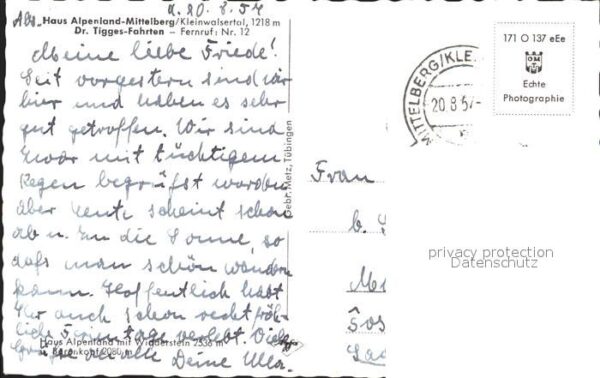 Abs. Haus Alpenland-Mittelberg/Kleinwalsertal, 1218 m
20.8.57
Dr. Tigges-Fahrten - Fernruf: Nr. 12
Meine liebe Friede!
Seit vorgestern sind wir
hier und haben es sehr
gut getroffen. Wir sind
zwar mit tüchtigem
Regen begrüßt worden
aber heute scheint schon
ab u. zu die Sonne, so
daß man schön wandern
kann. Hoffentlich habt
Ihr auch schon recht fröh-
liche Ferientage verlebt. Viele
Grüße an alle Deine Ulla.
Haus Alpenland mit Widderstein 2536 m
u. Bärenkopf 2080 m
Gebr. Metz, Tübingen
MITTELBERG/KLE
20.8.57-
171 O 137 eEe
Echte
Photographie
Frau
b.
privacy protection
Datenschutz